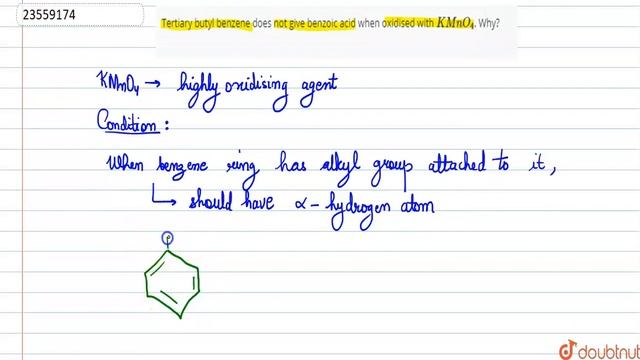 23559174
Tertiary butyl benzene does not give benzoic acid when oxidised with KMnO₄. Why?
KMnO₄ → highly oxidising agent
Condition :
When benzene ring has alkyl group attached to it,
↳ should have α - hydrogen atom
doubtnut